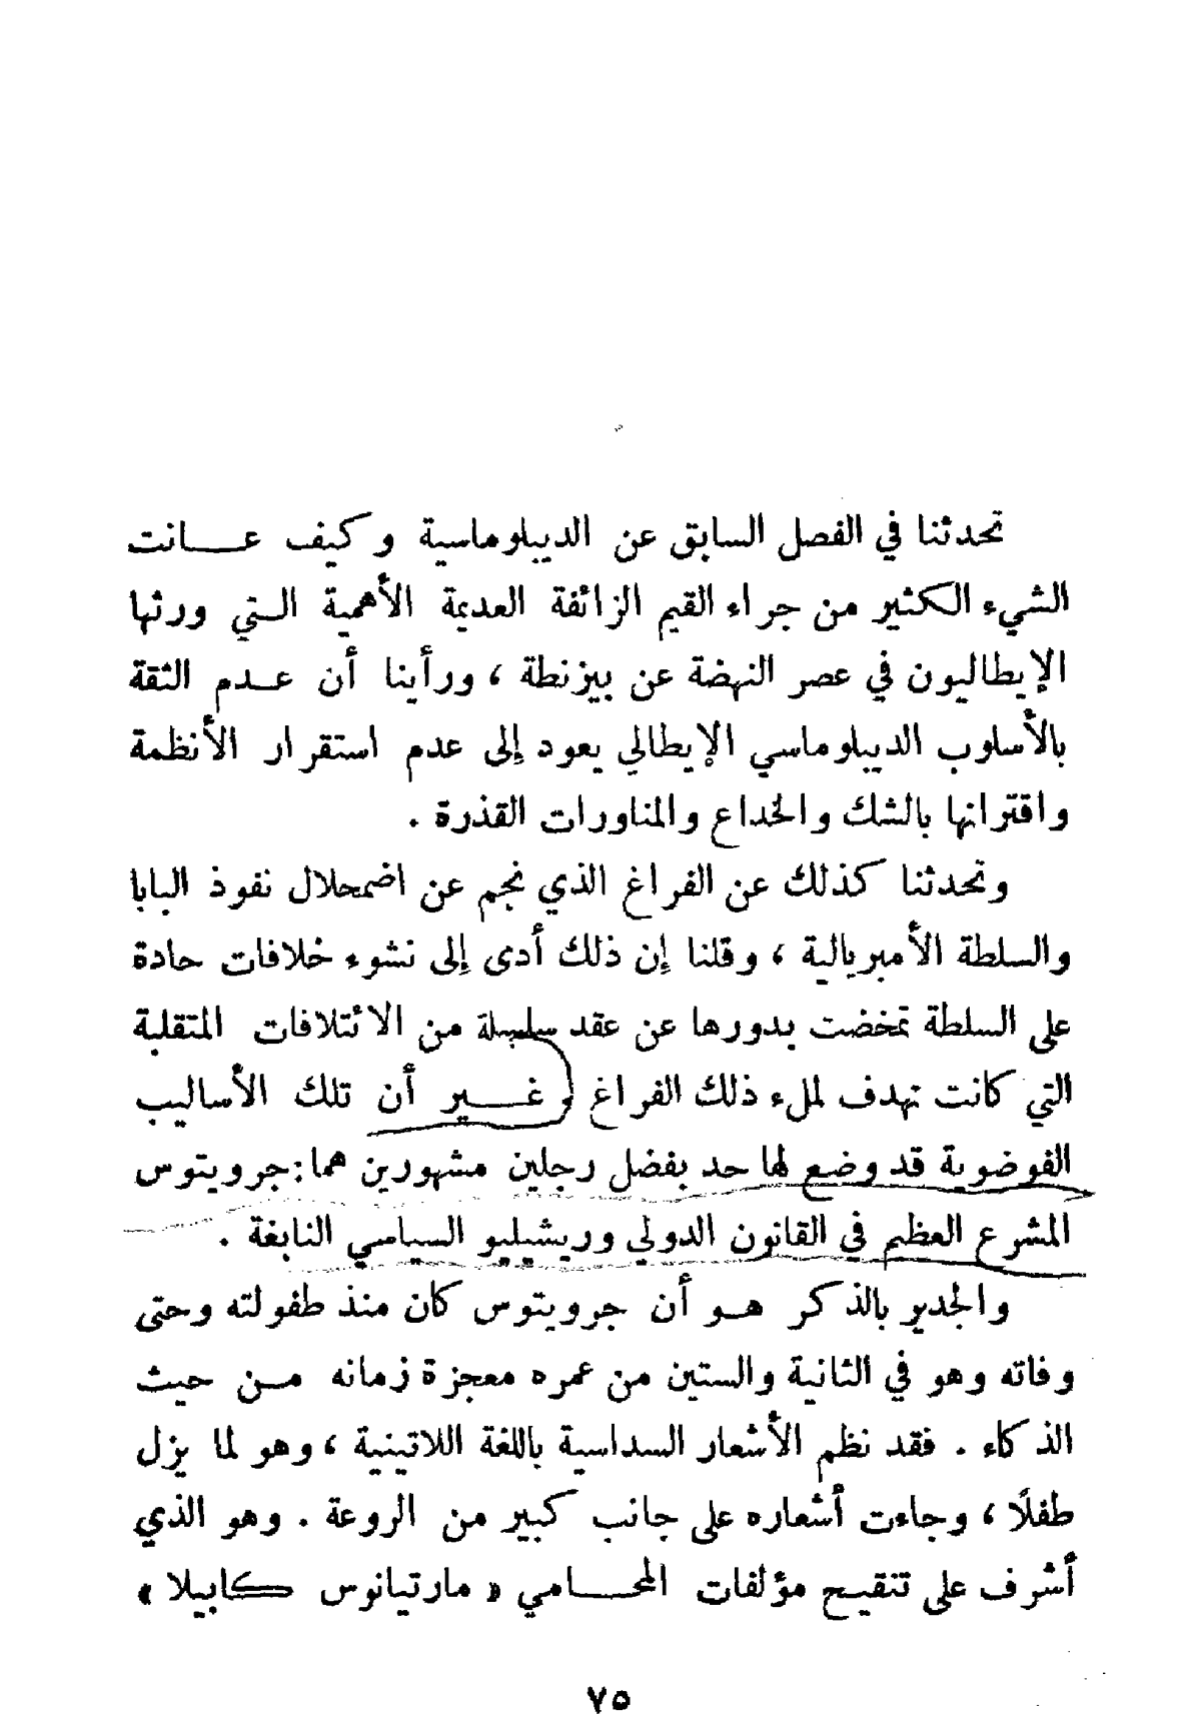 تحدثنا في الفصل السابق عن الديبلوماسية وكيف عانت
الشيء الكثير من جراء القيم الزائفة العديمة الأهمية التي ورثها
الإيطاليون في عصر النهضة عن بيزنطة ، ورأينا أن عدم الثقة
بالأسلوب الديبلوماسي الإيطالي يعود إلى عدم استقرار الأنظمة
واقترانها بالشك والخداع والمناورات القذرة .
وتحدثنا كذلك عن الفراغ الذي نجم عن اضمحلال نفوذ البابا
والسلطة الأمبريالية ، وقلنا إن ذلك أدى إلى نشوء خلافات حادة
على السلطة تمخضت بدورها عن عقد سلسلة من الائتلافات المتقلبة
التي كانت تهدف لملء ذلك الفراغ . غير أن تلك الأساليب
الفوضوية قد وضع لها حد بفضل رجلين مشهورين هما : جرويتوس
المشرع العظيم في القانون الدولي وريشيليو السياسي النابغة .
والجدير بالذكر هو أن جرويتوس كان منذ طفولته وحتى
وفاته وهو في الثانية والستين من عمره معجزة زمانه من حيث
الذكاء . فقد نظم الأشعار السداسية باللغة اللاتينية ، وهو لما يزل
طفلًا ، وجاءت أشعاره على جانب كبير من الروعة . وهو الذي
أشرف على تنقيح مؤلفات المحامي « مارتيانوس كابيلا »
٧٥